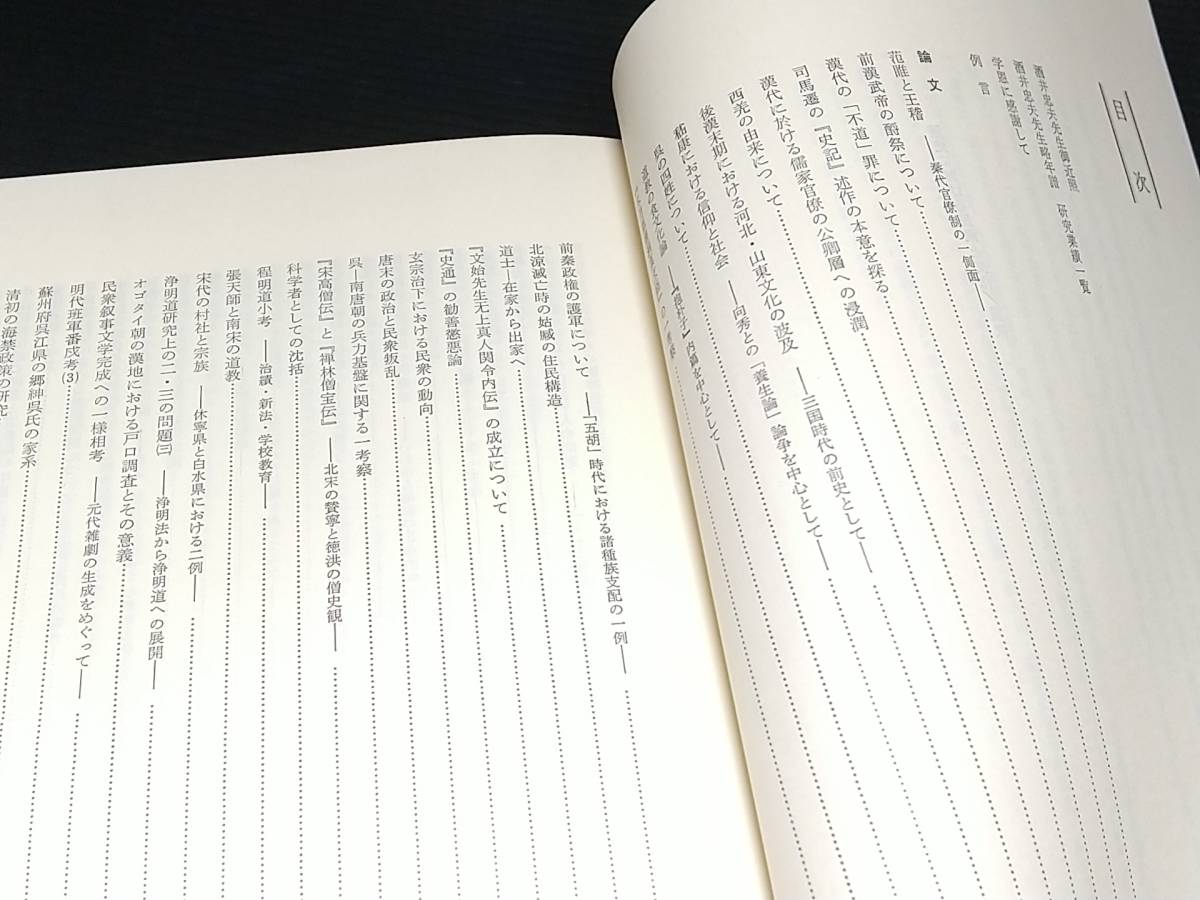 目次
酒井忠夫先生御近照
酒井忠夫先生略年譜 研究業績一覧
学恩に感謝して
例言
論文
范雎と王稽 ――秦代官僚制の一側面――
前漢武帝の酎祭について
漢代の「不道」罪について
司馬遷の『史記』述作の本意を探る
漢代に於ける儒家官僚の公卿層への浸潤
西羌の由来について
後漢末期における河北・山東文化の波及 ――三国時代の前史として――
嵆康における信仰と社会 ――向秀との「養生論」論争を中心として――
呉の四姓について
道教の 文化論 ――『抱朴子』内篇を中心として――
前秦政権の護軍について ――「五胡」時代における諸種族支配の一例――
北涼滅亡時の姑臧の住民構造
道士―在家から出家へ
『文始先生无上真人関令内伝』の成立について
『史通』の勧善懲悪論
玄宗治下における民衆の動向
唐末の政治と民衆坂乱
呉―南唐朝の兵力基盤に関する一考察
『宋高僧伝』と『禅林僧宝伝』 ――北宋の賛寧と徳洪の僧史観――
科学者としての沈括
程明道小考 ――治績・新法・学校教育――
張天師と南宋の道教
宋代の村社と宗族 ――休寧県と白水県における二例――
浄明道研究上の二・三の問題㈢ ――浄明法から浄明道への展開――
オゴタイ朝の漢地における戸口調査とその意義
民衆叙事文学完成への一様相考 ――元代雑劇の生成をめぐって――
明代班軍番戍考(3)
蘇州府呉江県の郷紳呉氏の家系
清初の海禁政策の研究